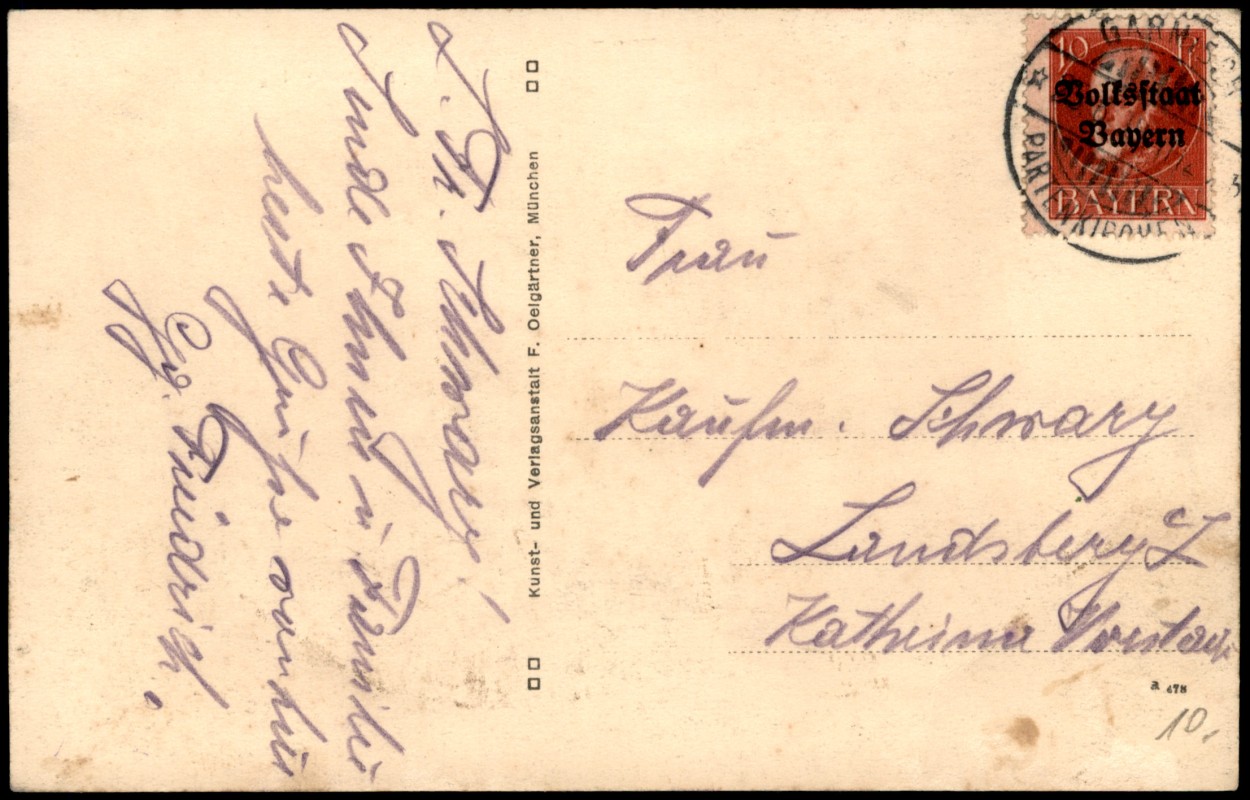 Schwarz!
Sende Ihnen u. Familie
beste Grüße von hier
Gg. Friedrich.
Kunst- und Verlagsanstalt F. Oelgärtner, München
GARMISCH
PARTENKIRCHEN
10
Volksstaat
Bayern
BAYERN
Frau
Kaufm. Schwarz
Landsberg a/L
Katharina Vorstadt
a 478
10.